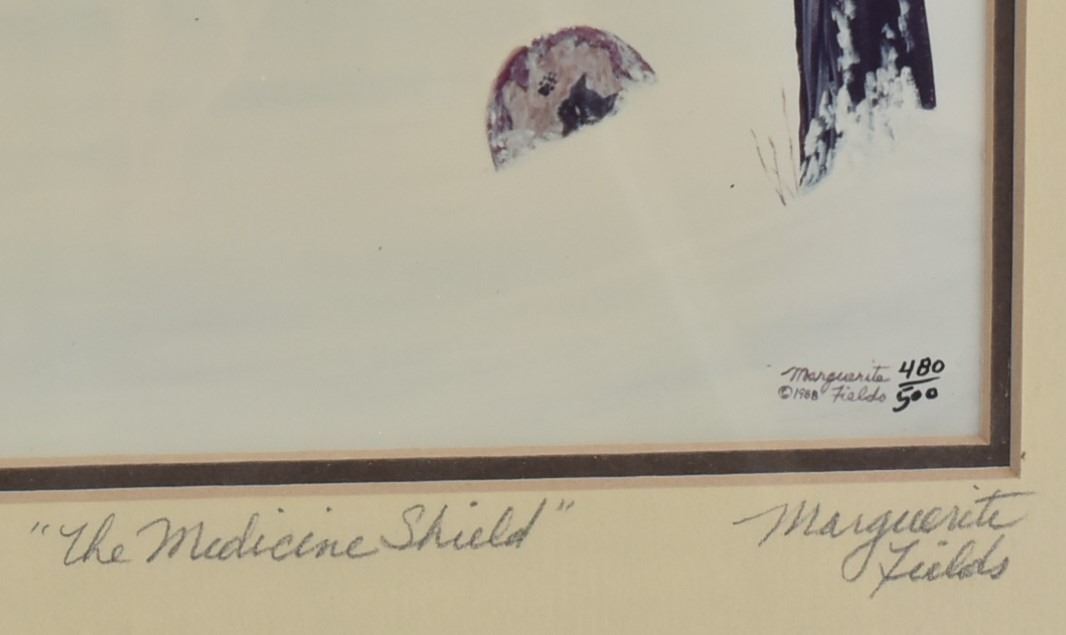 Marguerite 480/500
©1988 Fields
"The Medicine Shield"
Marguerite
Fields